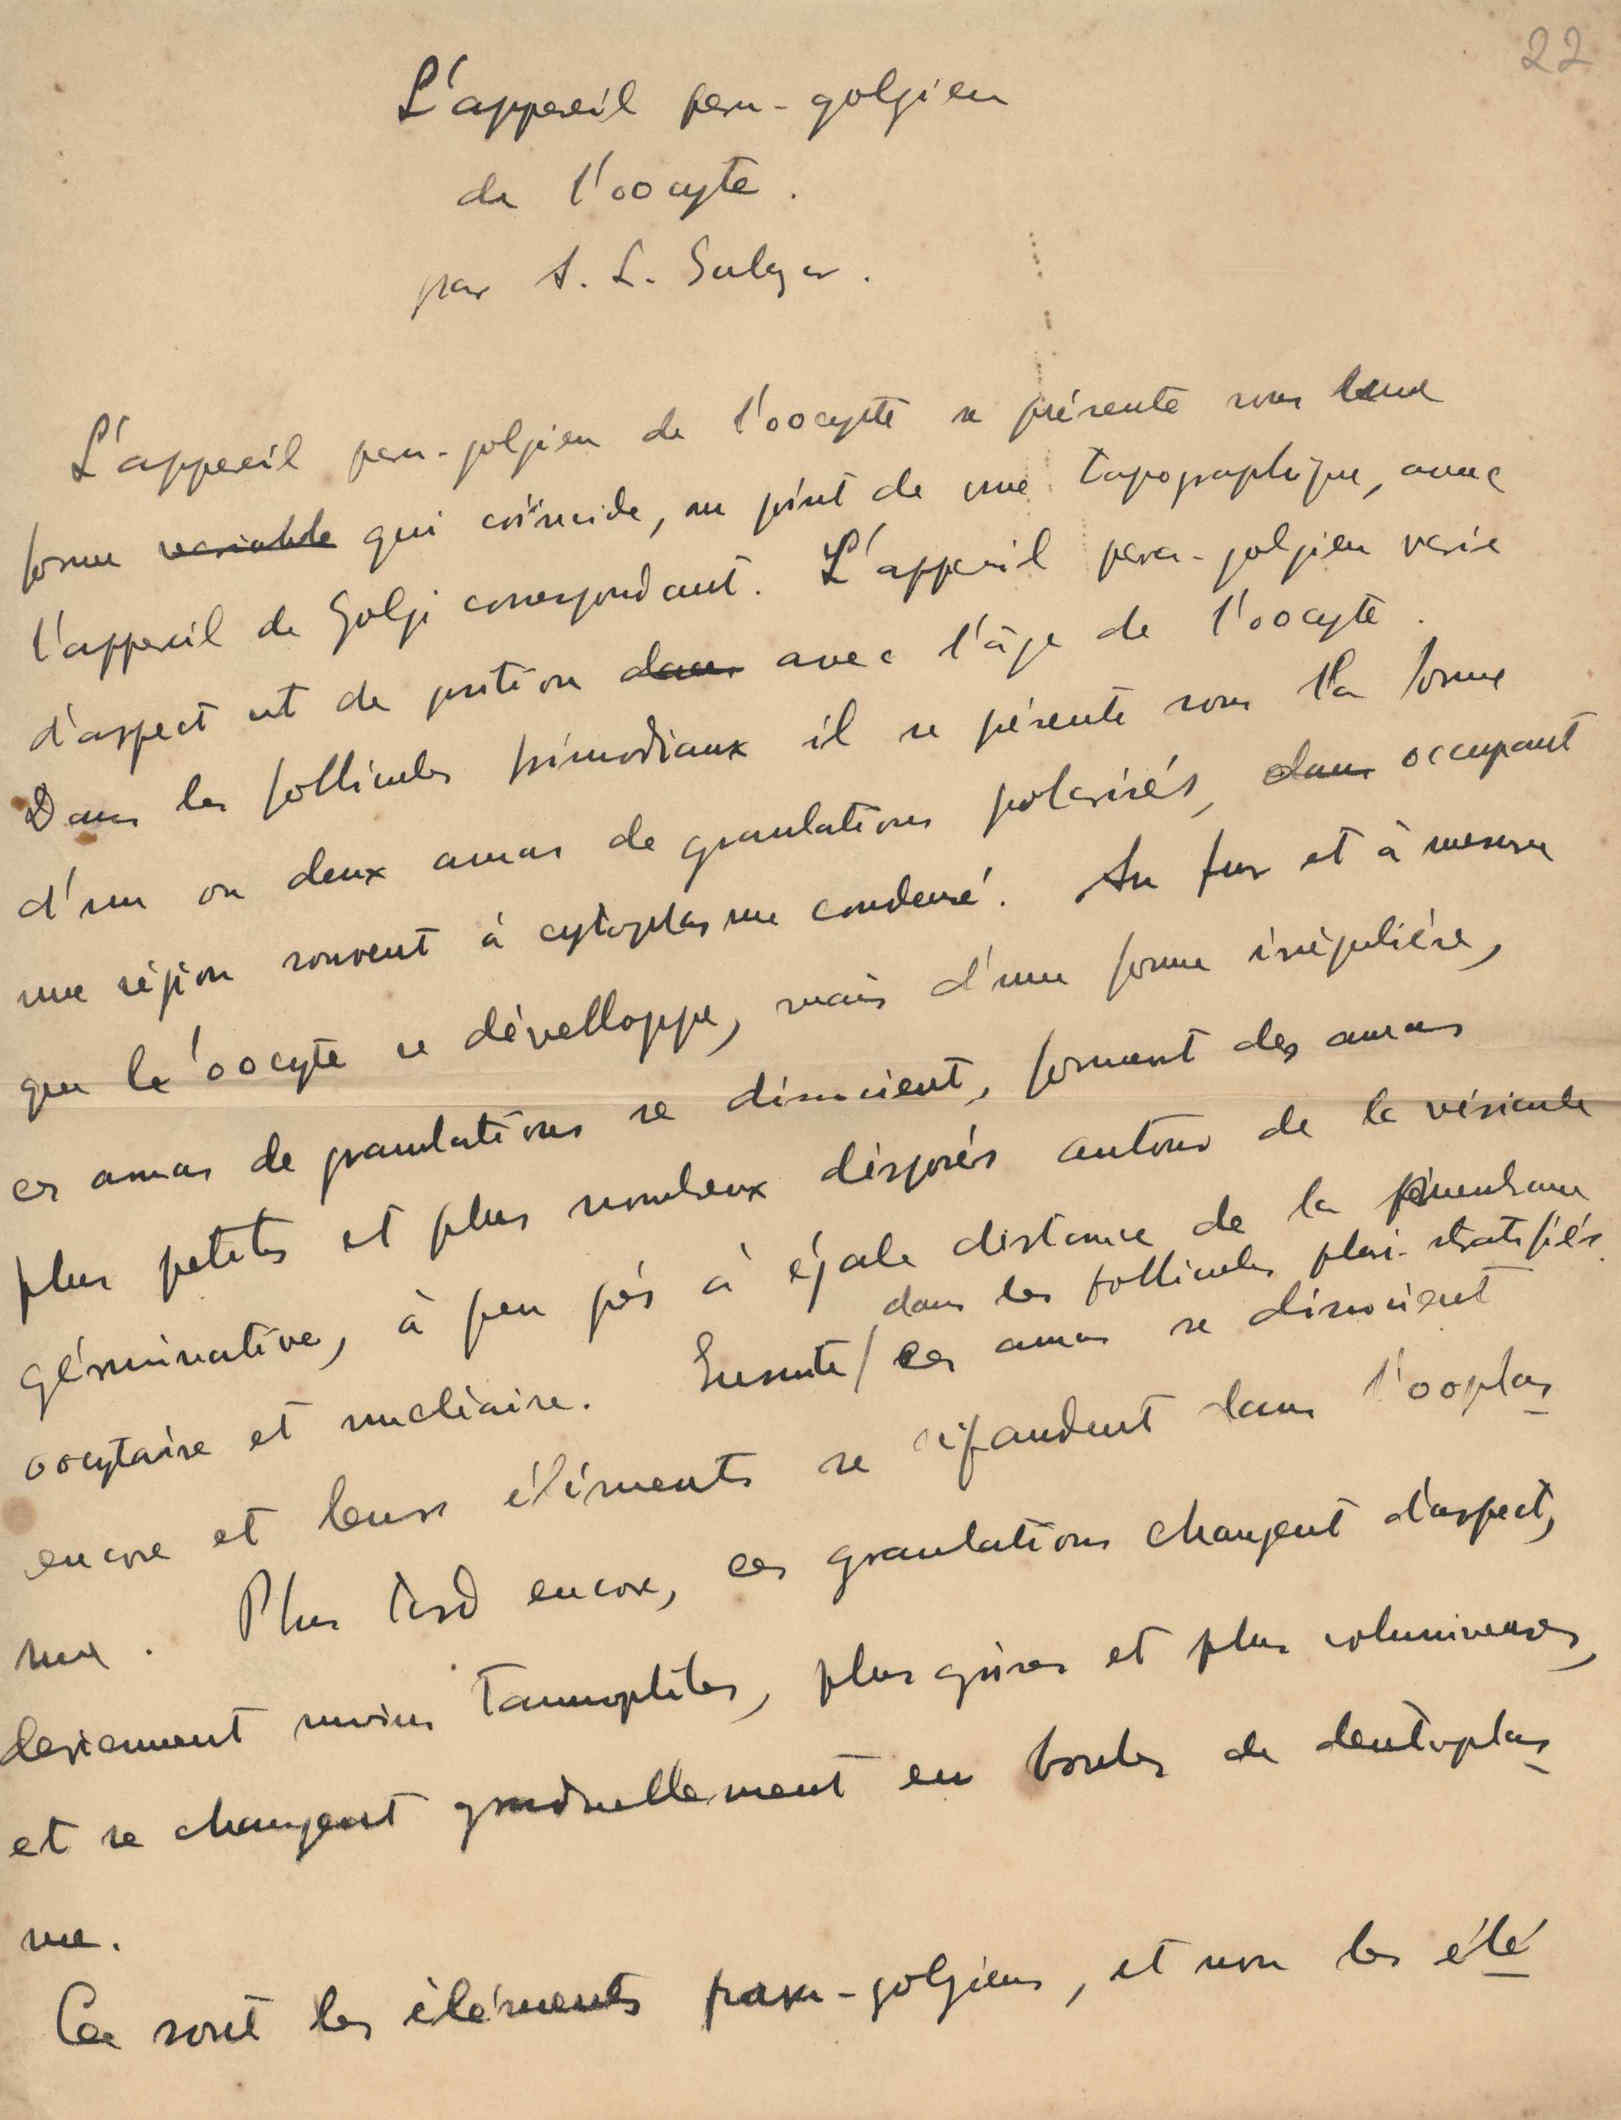 22
L'appareil para-golgien
de l'oocyte.
par A. L. Salazar.
L'appareil para-golgien de l'oocyte se présente sous une
forme variable qui coïncide, au point de vue topographique, avec
l'appareil de Golgi correspondant. L'appareil para-golgien varie
d'aspect et de position dans avec l'âge de l'oocyte.
Dans les follicules primordiaux il se présente sous la forme
d'un ou deux amas de granulations polarisés, dans occupant
une région souvent à cytoplasme condensé. Au fur et à mesure
que l'oocyte se dévelloppe, mais d'une forme irrégulière,
ces amas de granulations se dissocient, formant des amas
plus petits et plus nombreux disposés autour de la vésicule
gérminative, à peu près à égale distance de la membrane
dans les follicules pluri-stratifiés
oocytaire et nucléaire. Ensuite/ces amas se dissocient
encore et leurs éléments se répandent dans l'ooplas
me. Plus tard encore, ces granulations changent d'aspect,
deviennent moins tannophiles, plus grises et plus volumineuses,
et se changent graduellement en boules de deutoplas
me.
Ce sont les éléments para-golgiens, et non les élé